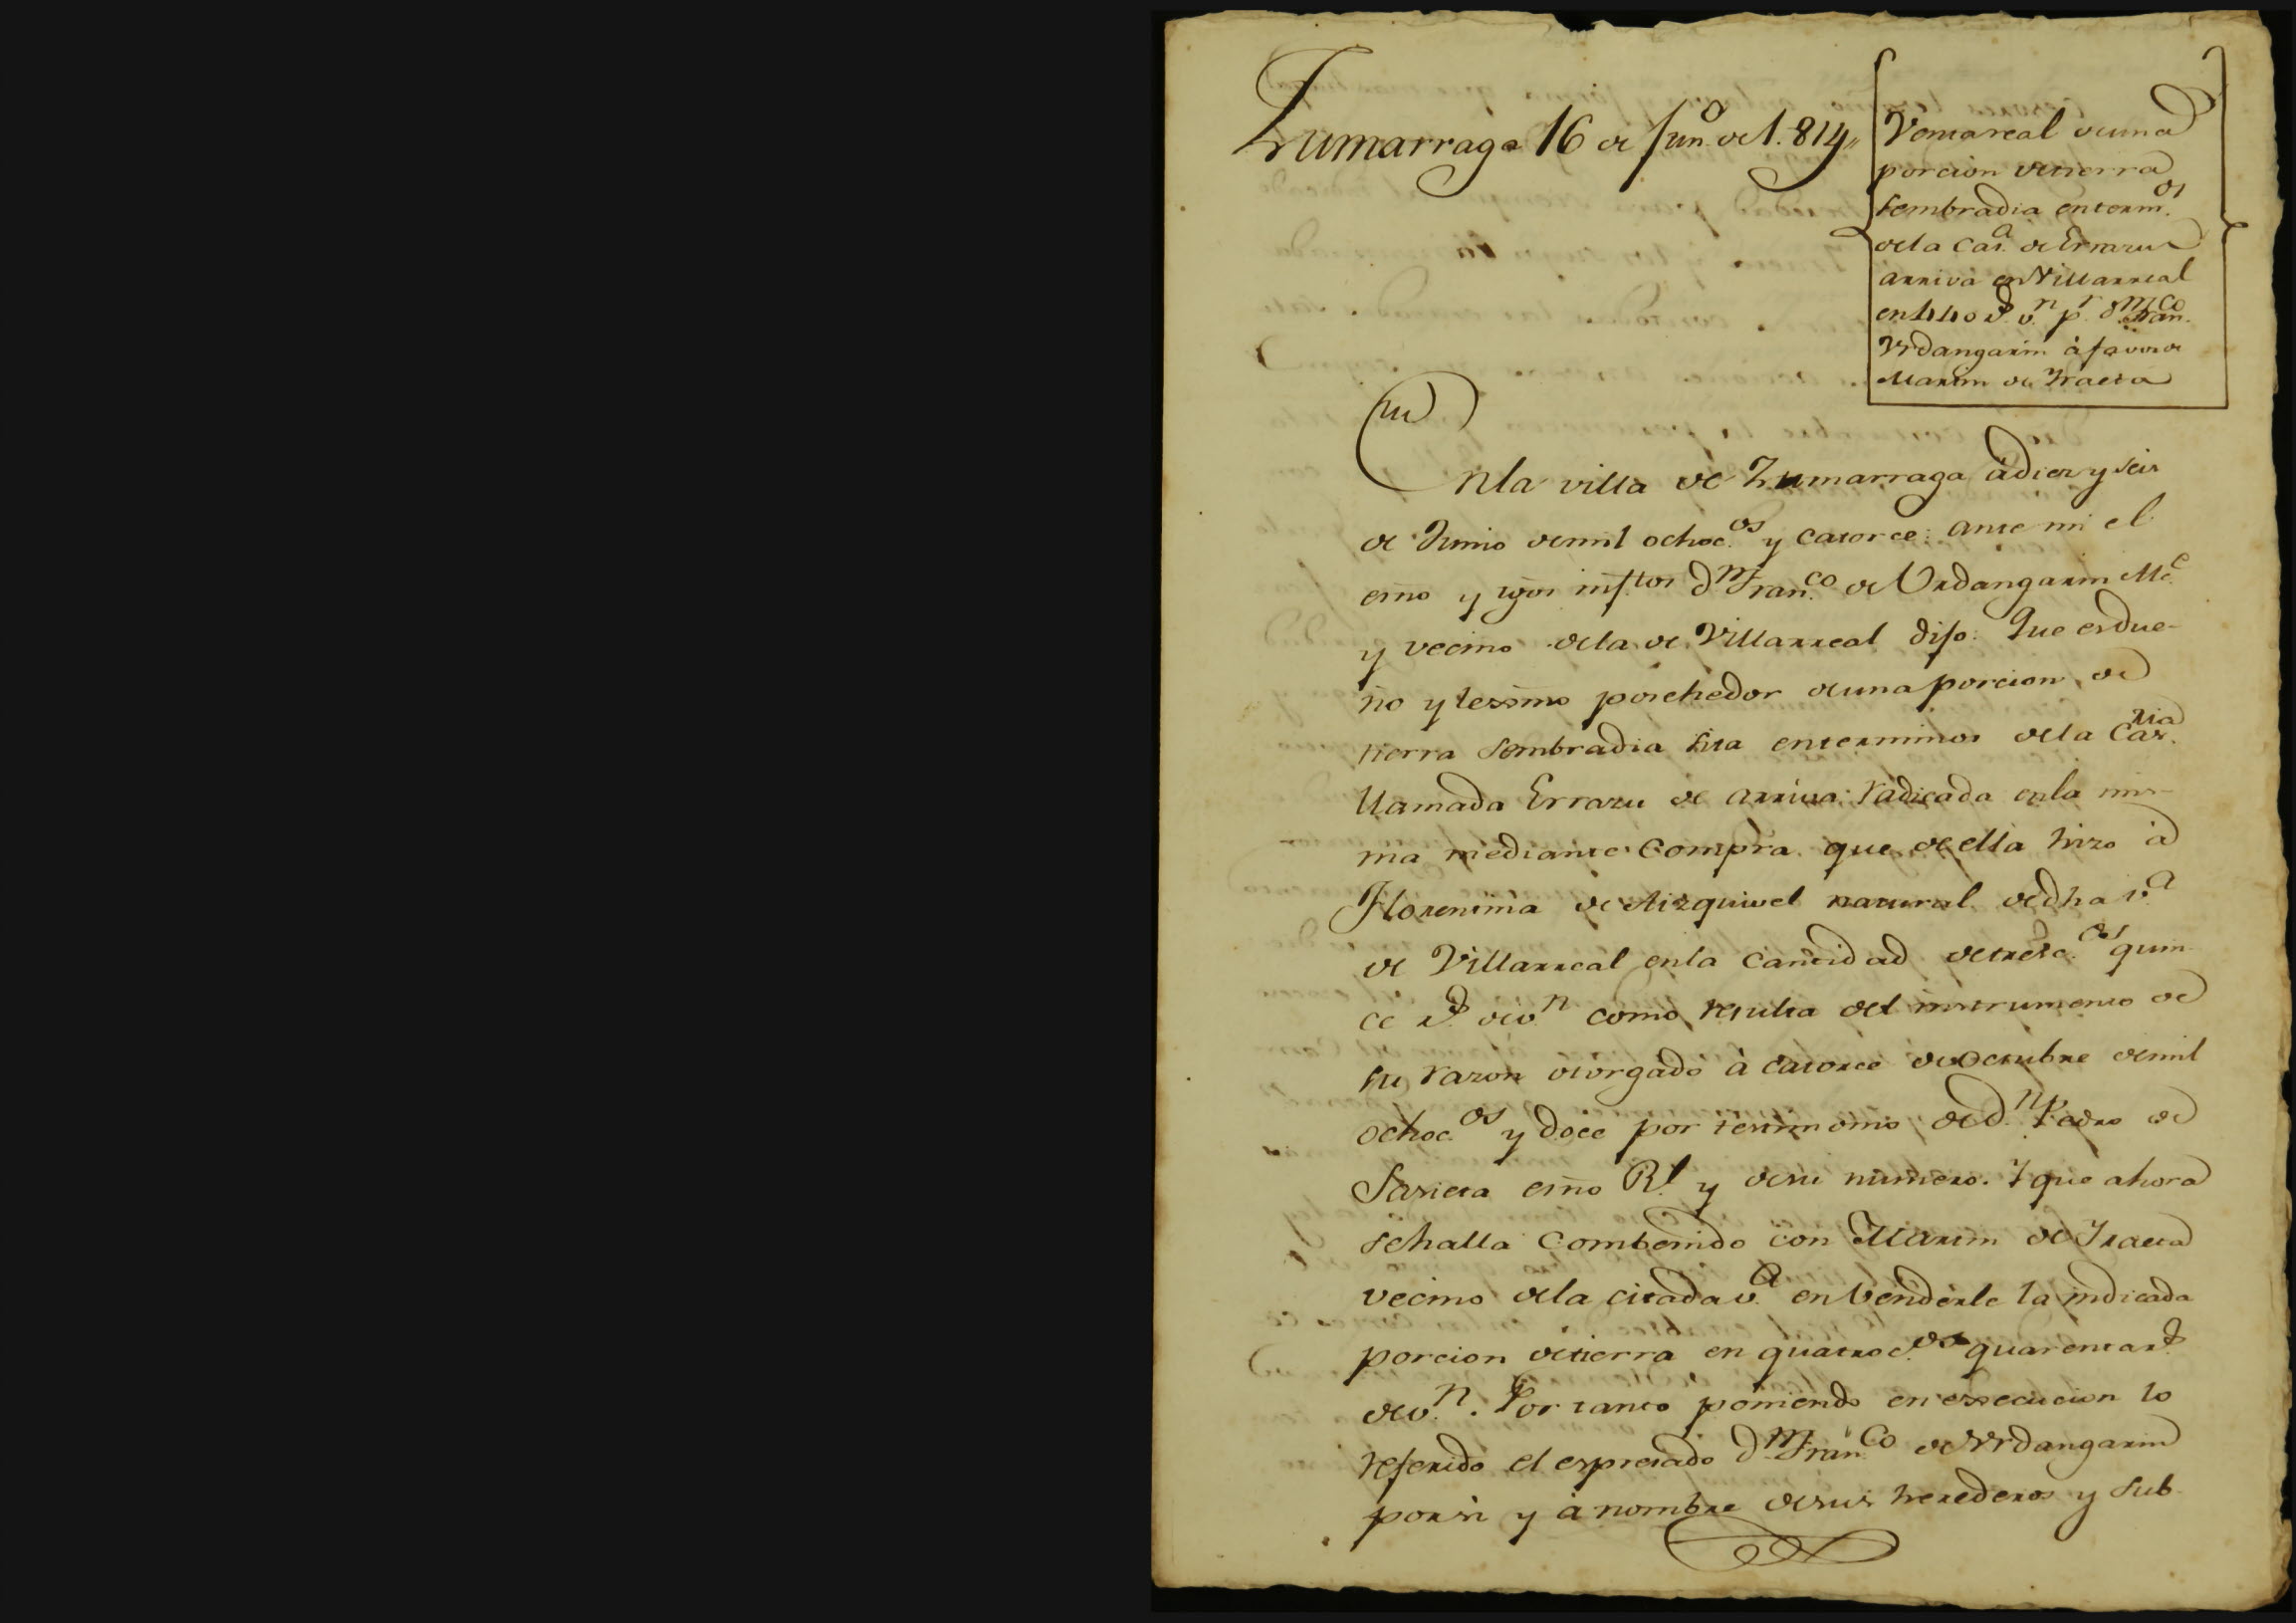 Zumarraga 16 de Jun.º de 1.814,,
Venta real de una
porcion de tierra
sembradia en term.os
de la Cas.ª de Errazu
arriva en Villarreal
en 440 r.s v.n p.r d.n Fran.co
Vrdangarin à favor de
Martin de Yraeta
En la villa de Zumarraga à diez y seis
de Junio de mil ochoc.os y catorce: ante mi el
esño y tgos inf.tos d.n Fran.co de Vrdangarin Me.e
y vecino de la de Villarreal dijo: Que es due-
ño y lexmo posehedor de una porcion de
tierra sembradia sita en terminos de la Cas.ria
llamada Errazu de arriva: radicada en la mis-
ma mediante Compra que de ella hizo à
Florentina de Aizquivel natural de dha v.ª
de Villarreal en la cantidad de tresc.os quin-
ce r.s de v.n como resulta del instrumento de
su razon otorgado à catorce de Octubre de mil
ochoc.os y doce por testimonio de d.n Pedro de
Sarieta esño R.l y de su numero. Y que ahora
se halla Combenido con Martin de Yraeta
vecino de la citada v.ª en benderle la indicada
porcion de tierra en quatroc.os quarenta r.s
de v.n. Por tanto poniendo en execucion lo
referido el expresado d.n Fran.co de Vrdangarin
por si y à nombre de sus herederos y sub